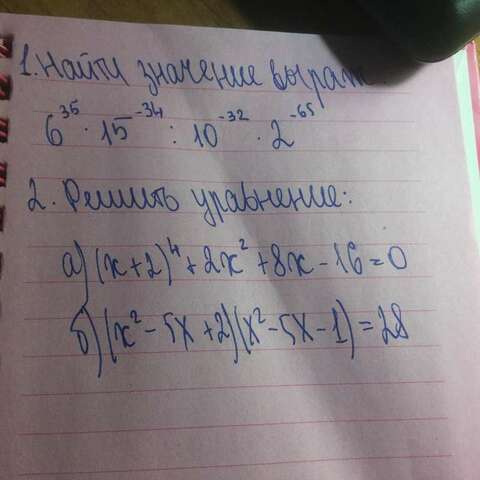 1. Найти значение выраж
6³⁵ · 15⁻³⁴ : 10⁻³² · 2⁻⁶⁵
2. Решить уравнение:
а) (x+2)⁴ + 2x² + 8x - 16 = 0
б) (x² - 5x + 2)(x² - 5x - 1) = 28